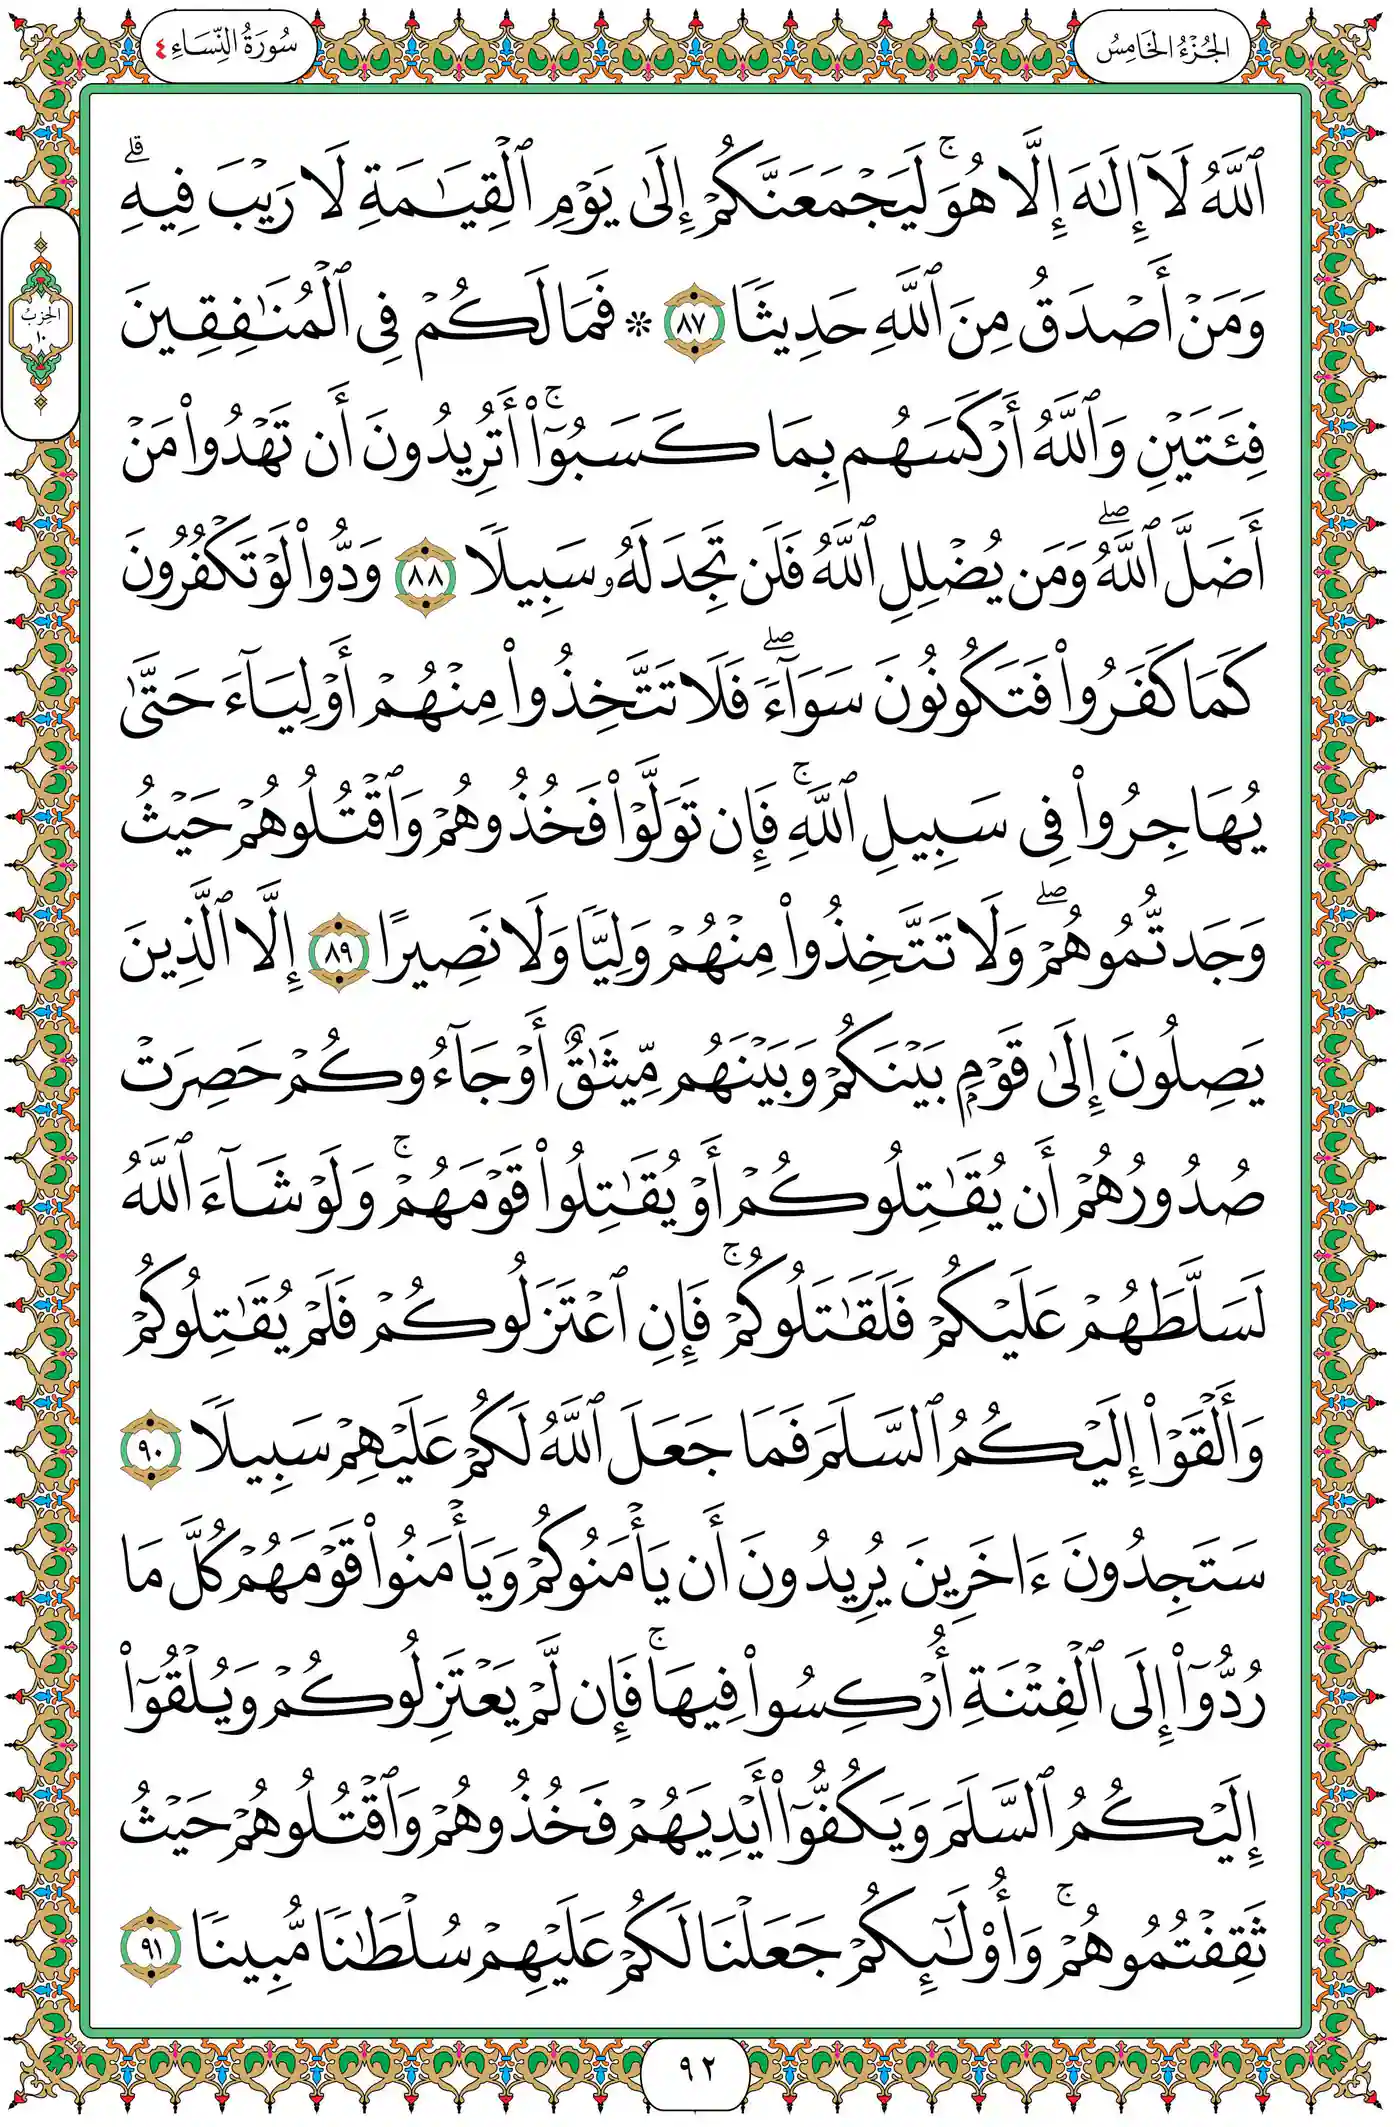 الجُزْءُ الخَامِسُ
سُورَةُ النِّسَاءِ ٤
ٱللَّهُ لَآ إِلَٰهَ إِلَّا هُوَۚ لَيَجْمَعَنَّكُمْ إِلَىٰ يَوْمِ ٱلْقِيَٰمَةِ لَا رَيْبَ فِيهِۗ
وَمَنْ أَصْدَقُ مِنَ ٱللَّهِ حَدِيثًا ٨٧ * فَمَا لَكُمْ فِى ٱلْمُنَٰفِقِينَ
فِئَتَيْنِ وَٱللَّهُ أَرْكَسَهُم بِمَا كَسَبُوٓا۟ۚ أَتُرِيدُونَ أَن تَهْدُوا۟ مَنْ
أَضَلَّ ٱللَّهُۖ وَمَن يُضْلِلِ ٱللَّهُ فَلَن تَجِدَ لَهُۥ سَبِيلًا ٨٨ وَدُّوا۟ لَوْ تَكْفُرُونَ
كَمَا كَفَرُوا۟ فَتَكُونُونَ سَوَآءًۖ فَلَا تَتَّخِذُوا۟ مِنْهُمْ أَوْلِيَآءَ حَتَّىٰ
يُهَاجِرُوا۟ فِى سَبِيلِ ٱللَّهِۚ فَإِن تَوَلَّوْا۟ فَخُذُوهُمْ وَٱقْتُلُوهُمْ حَيْثُ
وَجَدتُّمُوهُمْۖ وَلَا تَتَّخِذُوا۟ مِنْهُمْ وَلِيًّا وَلَا نَصِيرًا ٨٩ إِلَّا ٱلَّذِينَ
يَصِلُونَ إِلَىٰ قَوْمٍۭ بَيْنَكُمْ وَبَيْنَهُم مِّيثَٰقٌ أَوْ جَآءُوكُمْ حَصِرَتْ
صُدُورُهُمْ أَن يُقَٰتِلُوكُمْ أَوْ يُقَٰتِلُوا۟ قَوْمَهُمْۚ وَلَوْ شَآءَ ٱللَّهُ
لَسَلَّطَهُمْ عَلَيْكُمْ فَلَقَٰتَلُوكُمْۚ فَإِنِ ٱعْتَزَلُوكُمْ فَلَمْ يُقَٰتِلُوكُمْ
وَأَلْقَوْا۟ إِلَيْكُمُ ٱلسَّلَمَ فَمَا جَعَلَ ٱللَّهُ لَكُمْ عَلَيْهِمْ سَبِيلًا ٩٠
سَتَجِدُونَ ءَاخَرِينَ يُرِيدُونَ أَن يَأْمَنُوكُمْ وَيَأْمَنُوا۟ قَوْمَهُمْ كُلَّ مَا
رُدُّوٓا۟ إِلَى ٱلْفِتْنَةِ أُرْكِسُوا۟ فِيهَاۚ فَإِن لَّمْ يَعْتَزِلُوكُمْ وَيُلْقُوٓا۟
إِلَيْكُمُ ٱلسَّلَمَ وَيَكُفُّوٓا۟ أَيْدِيَهُمْ فَخُذُوهُمْ وَٱقْتُلُوهُمْ حَيْثُ
ثَقِفْتُمُوهُمْۚ وَأُو۟لَٰٓئِكُمْ جَعَلْنَا لَكُمْ عَلَيْهِمْ سُلْطَٰنًا مُّبِينًا ٩١
الحِزْبُ
١٠
٩٢